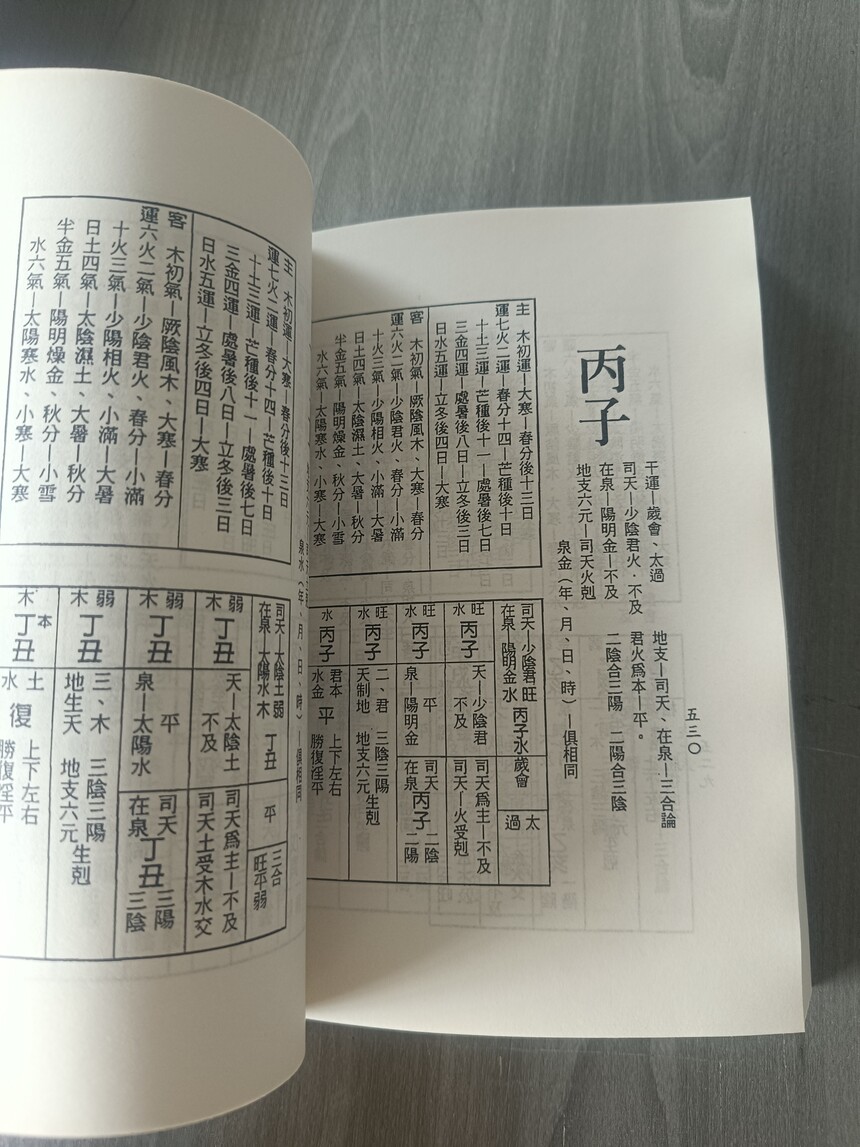 五三〇
丙子
干運—歲會、太過
司天—少陰君火．不及
在泉—陽明金—不及
地支六元—司天火剋
泉金（年、月、日、時）—俱相同
地支—司天、在泉—三合論
君火爲本—平。
二陰合三陽　二陽合三陰
主運
木初運—大寒—春分後十三日
七火二運—春分十四—芒種後十日
十土三運—芒種後十一—處暑後七日
三金四運—處暑後八日—立冬後三日
日水五運—立冬後四日—大寒
客運
木初氣—厥陰風木、大寒—春分
六火二氣、少陰君火、春分—小滿
十火三氣—少陽相火、小滿—大暑
日土四氣—太陰濕土、大暑—秋分
半金五氣—陽明燥金、秋分—小雪
水六氣—太陽寒水、小寒—大寒
司天—少陰君旺
在泉　陽明金水
丙子水歲會
太過
旺水丙子
天—少陰君
不及
司天爲主—不及
司天—火受剋
旺水丙子
平
泉—陽明金
司天
在泉
丙子
二陰
二陽
水丙子
二、君　三陰三陽
天制地　地支六元生剋
水丙子
君本
水金
平
上下左右
勝復淫平
泉水（年、月、日、時）—俱相同
主運
木初運—大寒—春分後十三日
七火二運—春分十四—芒種後十日
十土三運—芒種後十一—處暑後七日
三金四運—處暑後八日—立冬後三日
日水五運—立冬後四日—大寒
客運
木初氣—厥陰風木、大寒—春分
六火二氣、少陰君火、春分—小滿
十火三氣—少陽相火、小滿—大暑
日土四氣—太陰濕土、大暑—秋分
半金五氣—陽明燥金、秋分—小雪
水六氣—太陽寒水、小寒—大寒
司天　太陰土弱
在泉　太陽水木
丁丑
平
三合
旺平弱
弱木丁丑
天—太陰土
不及
司天爲主—不及
司天土受木水交
弱木丁丑
平
泉—太陽水
司天
在泉
丁丑
三陽
三陰
弱木丁丑
三、木　三陰三陽
地生天　地支六元生剋
本木丁丑
土
水
復
上下左右
勝復淫平